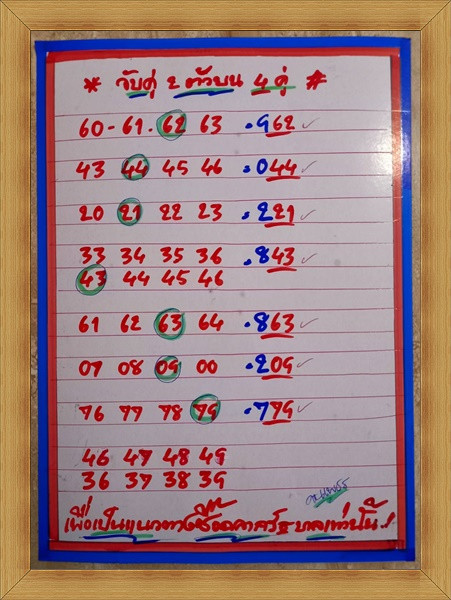 * จับคู่ 2 ตัวบน 4 คู่ #
60 - 61 . 62 63 . 962 ✓
43 44 45 46 . 044 ✓
20 21 22 23 . 221 ✓
33 34 35 36 . 843 ✓
43 44 45 46
61 62 63 64 . 863 ✓
07 08 09 00 . 209 ✓
76 77 78 79 . 779 ✓
46 47 48 49
36 37 38 39
เพื่อเป็นแนวทางซื้อสลากรัฐบาลเท่านั้น.!